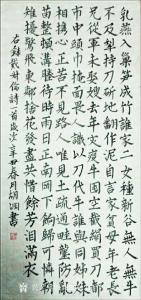 乳燕入巢笋成竹誰家二女種新谷無人無牛
不及犁持刀斫地翻作泥自言家貧母年老長
兄從軍未娶嫂去年灾疫牛囤空截絹買刀都
市中頭巾掩面畏人識以刀代牛誰與同姊妹
相携心正苦不見路人唯見土疏通畦壟防亂
苗整頓溝塍待時雨日正南岡下餉歸可憐朝
雉擾驚飛東鄰西舍花發盡共惜餘芳泪滿衣
右錄戴叔倫詩一首歲次辛丑春月胡 書